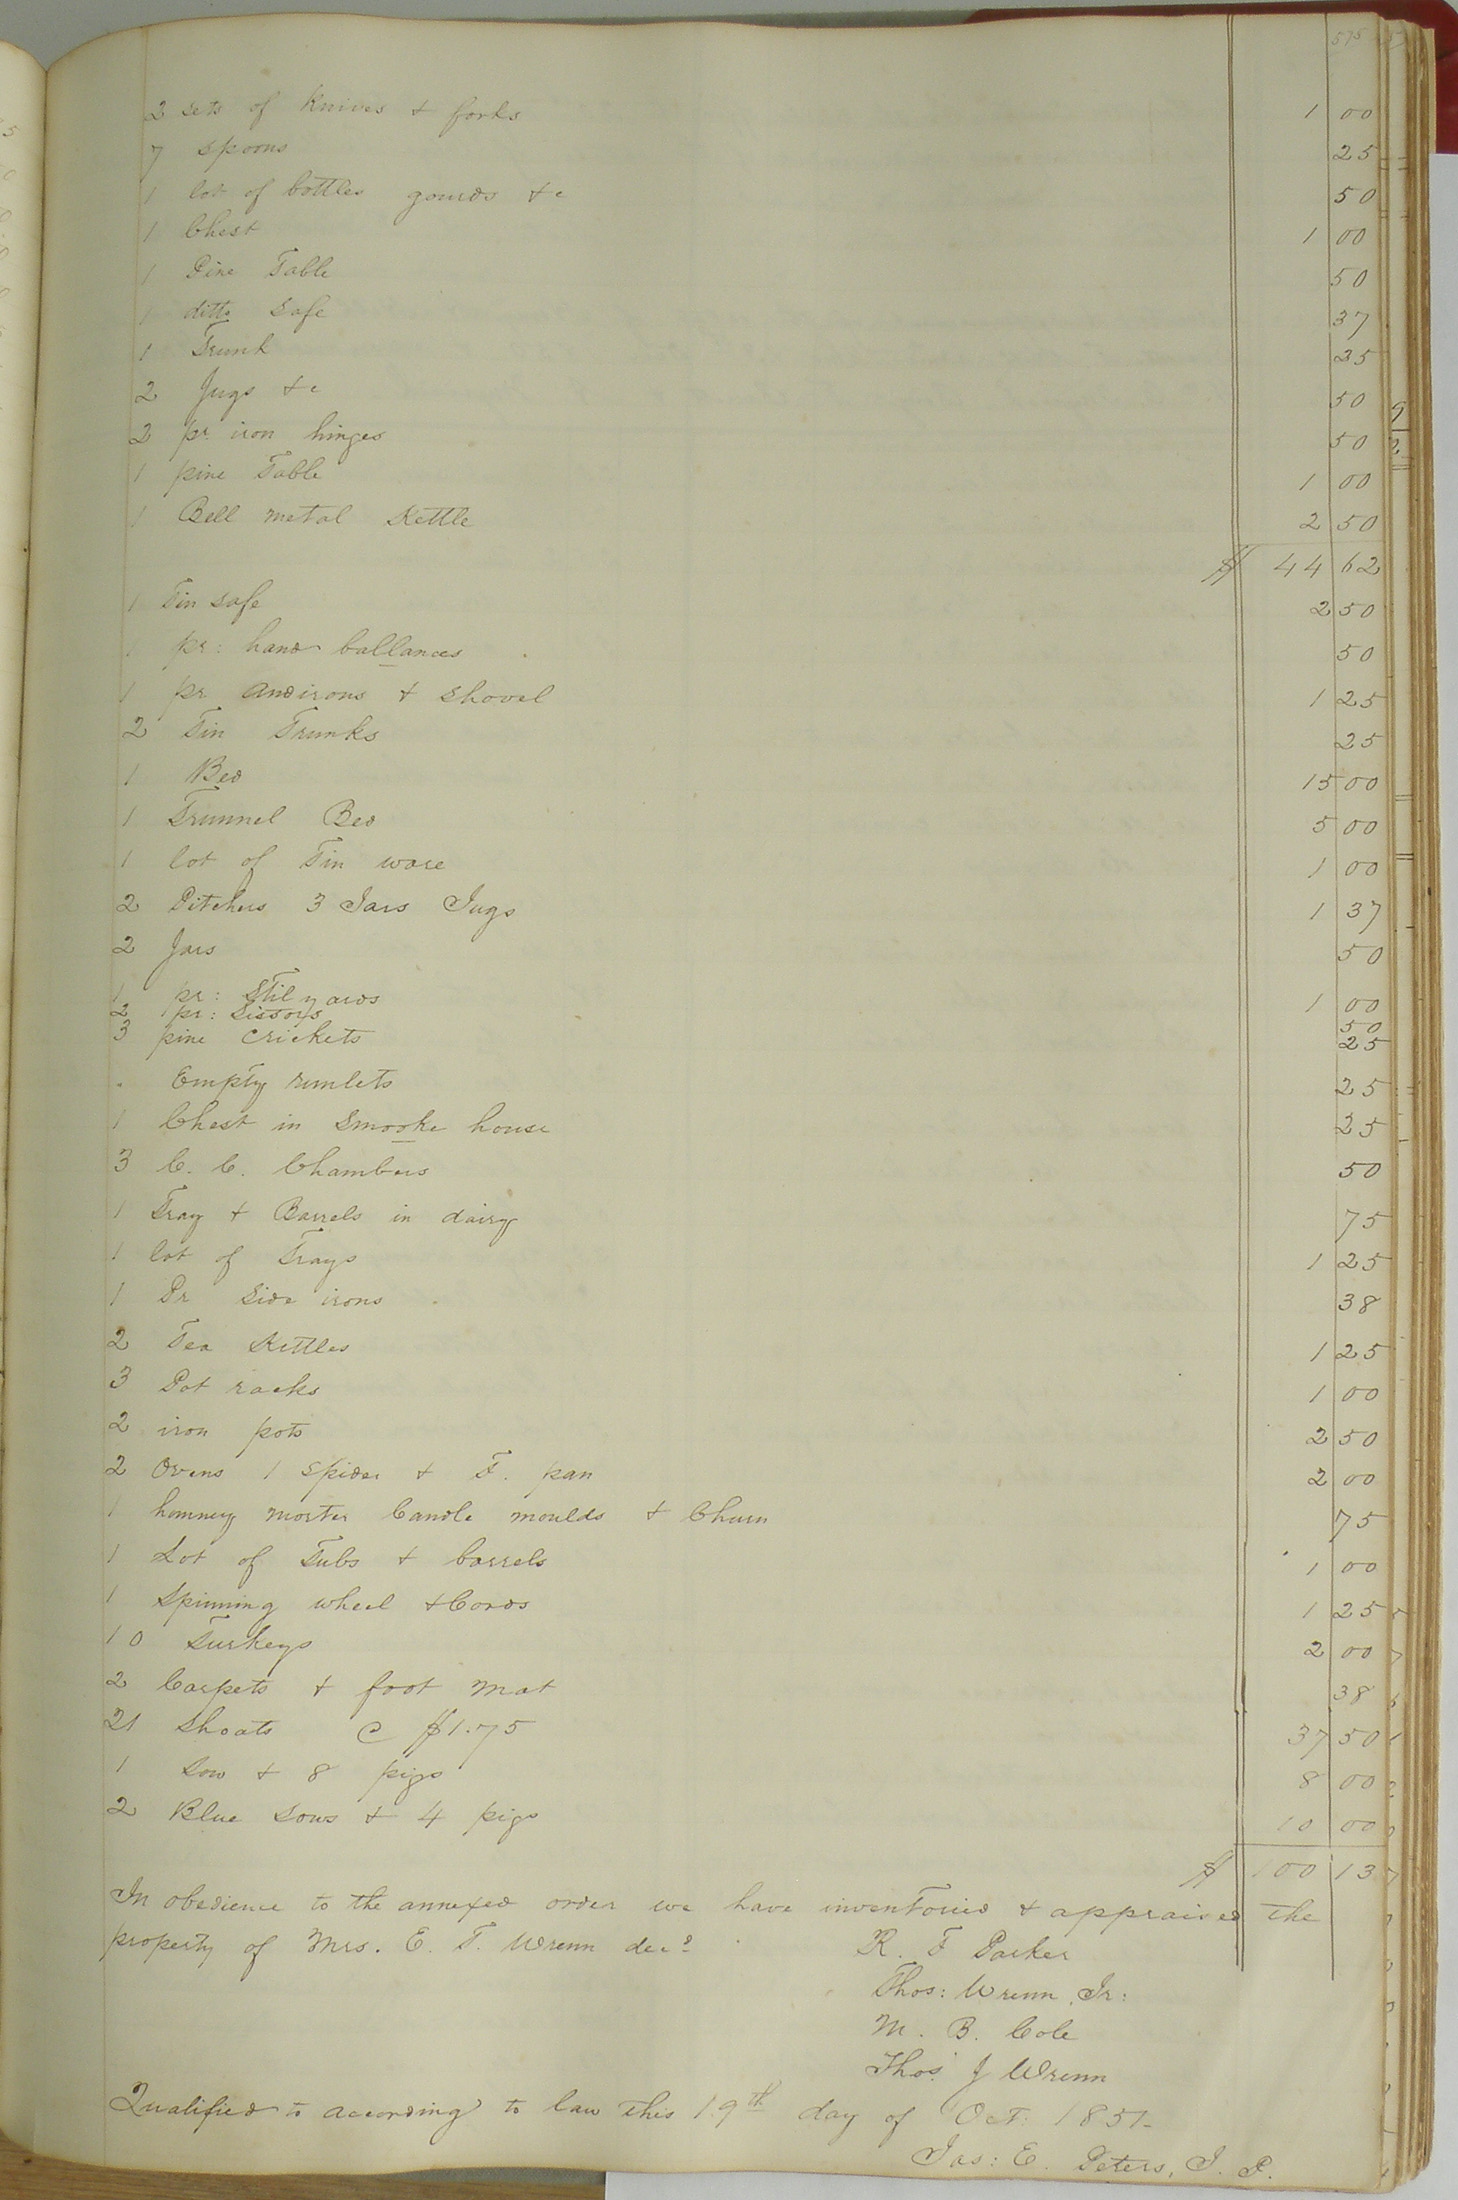 575
2 sets of Knives & forks 1 00
7 spoons 25
1 lot of bottles gourds &c 50
1 Chest 1 00
1 Pine Table 50
1 ditto Safe 37
1 Trunk 25
2 Jugs &c 50
2 pr iron hinges 50
1 pine Table 1 00
1 Bell metal Kettle 2 50
$ 44 62
1 Tin safe 2 50
1 pr: hand ballances 50
1 pr Andirons & Shovel 1 25
2 Tin Trunks 25
1 Bed 15 00
1 Trunnel Bed 5 00
1 lot of Tin ware 1 00
2 Pitchers 3 Jars Jugs 1 37
2 Jars 50
1 pr: Stilyards 1 00
2 pr: Sissors 50
3 pine crickets 25
Empty rumlets 25
1 Chest in Smooke house 25
3 C. C. Chambers 50
1 Tray & Barrels in dairy 75
1 lot of Trays 1 25
1 Pr Side irons 38
2 Tea Kettles 1 25
3 Pot racks 1 00
2 iron pots 2 50
2 Ovens 1 spider & F. pan 2 00
1 hommey morter Candle moulds & Churn 75
1 Lot of Tubs & barrels 1 00
1 Spinning wheel & Cords 1 25
10 Turkeys 2 00
2 Carpets & foot mat 38
21 Shoats @ $1.75 37 50
1 Sow & 8 pigs 8 00
2 Blue Sows & 4 pigs 10 00
$ 100 13
In obedience to the annexed order we have inventoried & appraised the
property of Mrs. E. T. Wrenn decd
R. F Parker
Thos: Wrenn Jr:
M. B. Cole
Thos. J Wrenn
Qualified to according to law this 19th day of Oct: 1851-
Jas: E. Peters, J. P.